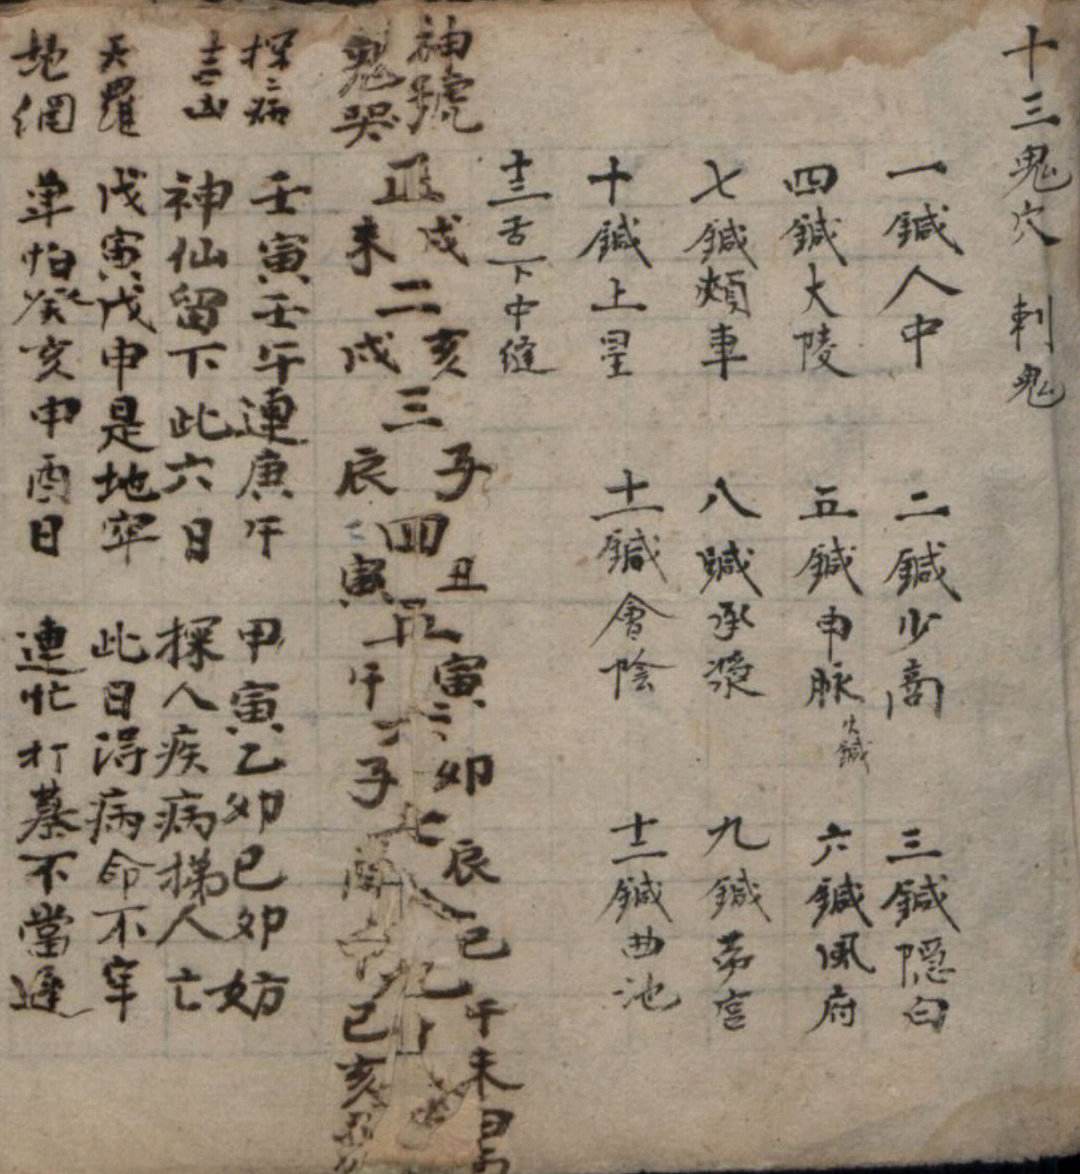 十三鬼穴 刺鬼
一鍼人中 二鍼少商 三鍼隱白
四鍼大陵 五鍼申脉火鍼 六鍼風府
七鍼頰車 八鍼承漿 九鍼劳宫
十鍼上星 十一鍼會陰 十二鍼曲池
十三舌下中縫
神號 戌亥子丑寅卯辰巳午未
正二三四五六七八九十
鬼哭 未戌辰寅午子酉申巳亥
探病 壬寅壬午連庚午 甲寅乙卯巳卯妨
吉凶 神仙留下此六日 探人疾病㨹人亡
天羅 戊寅戊申是地牢 此日得病命不牢
地網 单怕癸亥申酉日 連忙打墓不當遲